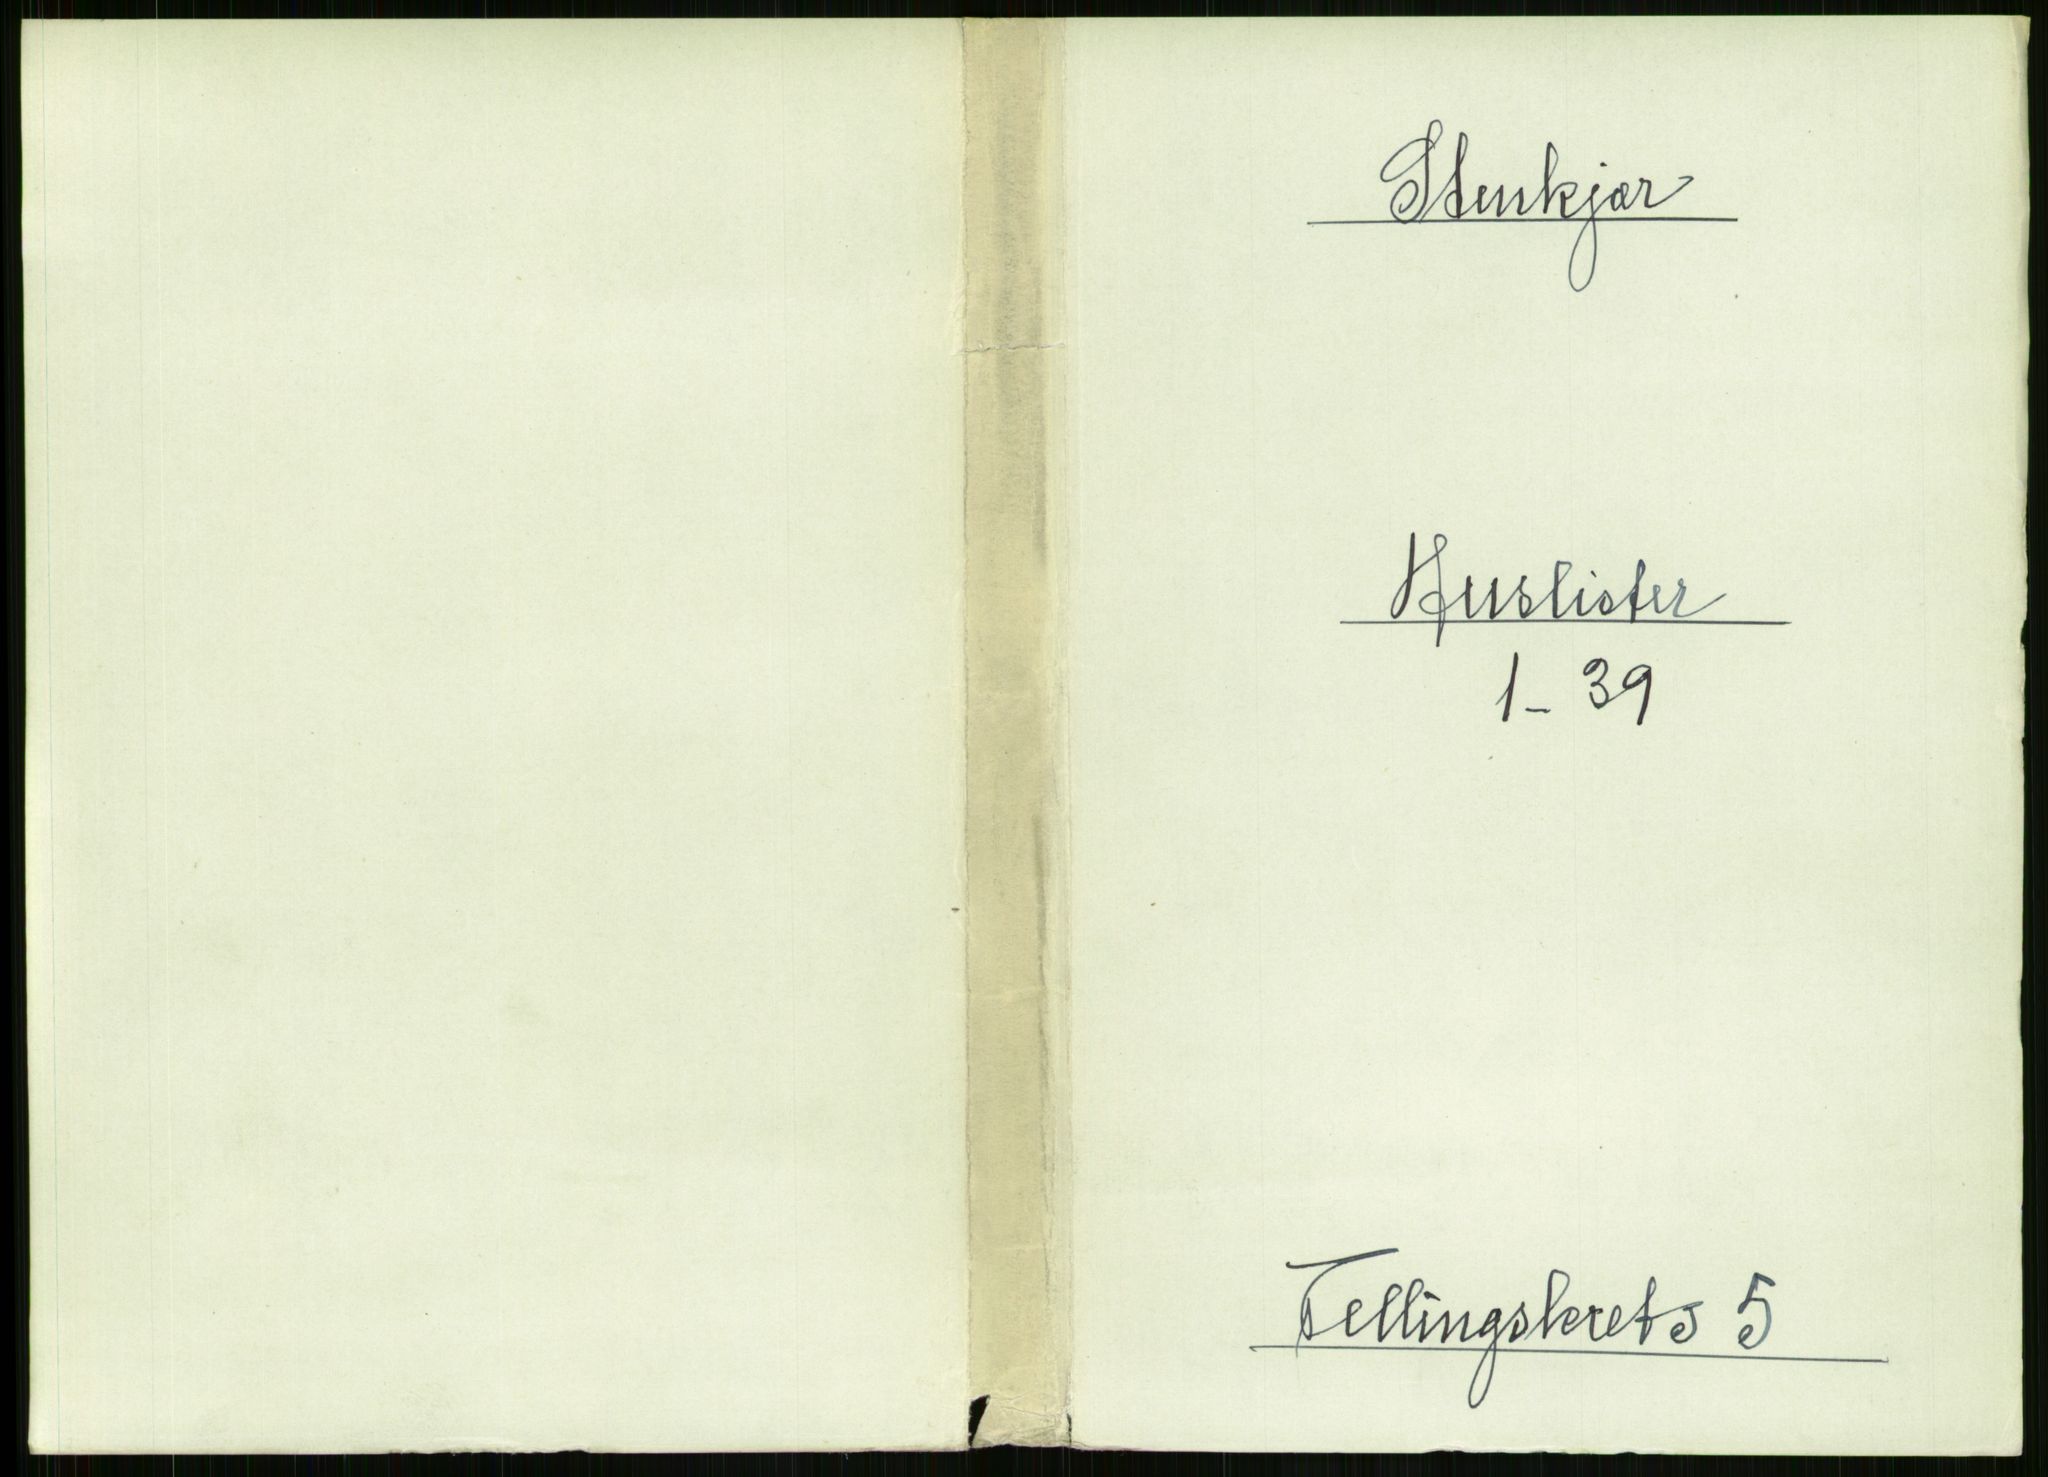 Stenkjær
Huslister
1-39
Tellingskrets 5